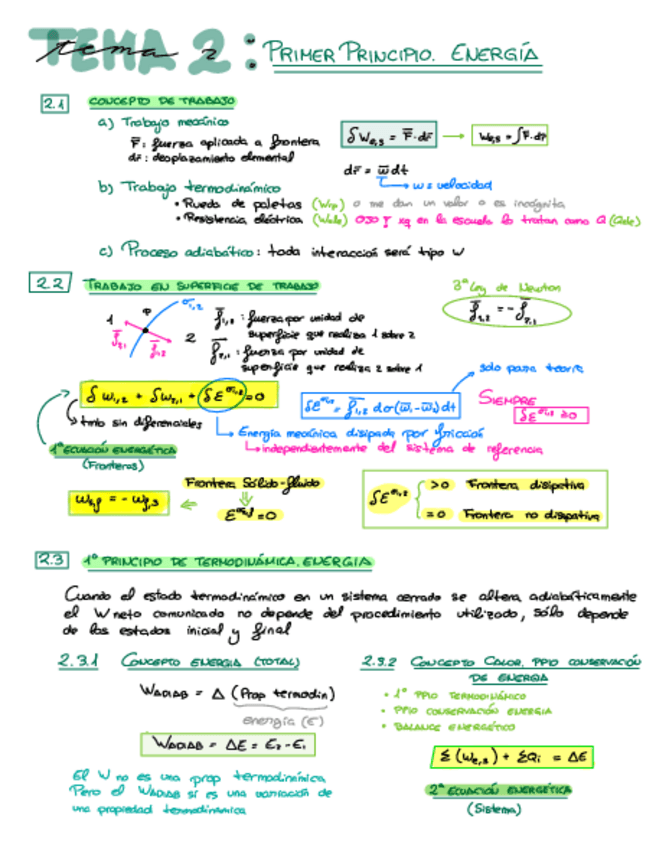 TEMA 2: PRIMER PRINCIPIO. ENERGÍA
tema 2
2.1 CONCEPTO DE TRABAJO
a) Trabajo mecánico
F̄: fuerza aplicada a frontera
dr̄: desplazamiento elemental
δW_{e,s} = F̄·dr̄ → W_{e,s} = ∫F̄·dr̄
dr̄ = w̄dt
w ≡ velocidad
b) Trabajo termodinámico
• Rueda de paletas (Wrp) o me dan un valor o es incógnita
• Resistencia eléctrica (Wele) OJO xq en la escuela lo tratan como Q (Qele)
c) Proceso adiabático: toda interacción será tipo W
2.2 TRABAJO EN SUPERFICIE DE TRABAJO
3ª Ley de Newton
f̄_{1,2} = - f̄_{2,1}
1 P σ_{1,2} 2
f̄_{2,1} f̄_{1,2}
f̄_{1,2}: fuerza por unidad de
superficie que realiza 1 sobre 2
f̄_{2,1}: fuerza por unidad de
superficie que realiza 2 sobre 1
solo para teoría
δW_{1,2} + δW_{2,1} + δE^{σ_{1,2}} = 0
δE^{σ_{1,2}} = f̄_{1,2} dσ(w̄₁-w̄₂)dt
SIEMPRE
δE^{σ_{1,2}} ≥ 0
tmb sin diferenciales
Energía mecánica disipada por fricción
independientemente del sistema de referencia
1ª ECUACIÓN ENERGÉTICA
(Fronteras)
Frontera Sólido-fluido
W_{s,f} = - W_{f,s} ⇐ E^{σ_{s,f}} = 0
δE^{σ_{1,2}} { >0 Frontera disipativa
=0 Frontera no disipativa
2.3 1º PRINCIPIO DE TERMODINÁMICA. ENERGÍA
Cuando el estado termodinámico en un sistema cerrado se altera adiabáticamente
el W neto comunicado no depende del procedimiento utilizado, sólo depende
de los estados inicial y final
2.3.1 CONCEPTO ENERGÍA (TOTAL)
W_{ADIAB} = Δ (Prop termodin)
energía (E)
W_{ADIAB} = ΔE = E₂-E₁
El W no es una prop termodinámica
Pero el W_{ADIAB} sí es una variación de
una propiedad termodinámica
2.3.2 CONCEPTO CALOR, PPIO CONSERVACIÓN
DE ENERGÍA
• 1º PPIO TERMODINÁMICO
• PPIO CONSERVACIÓN ENERGÍA
• BALANCE ENERGÉTICO
Σ(W_{e,s}) + ΣQi = ΔE
2ª ECUACIÓN ENERGÉTICA
(Sistema)